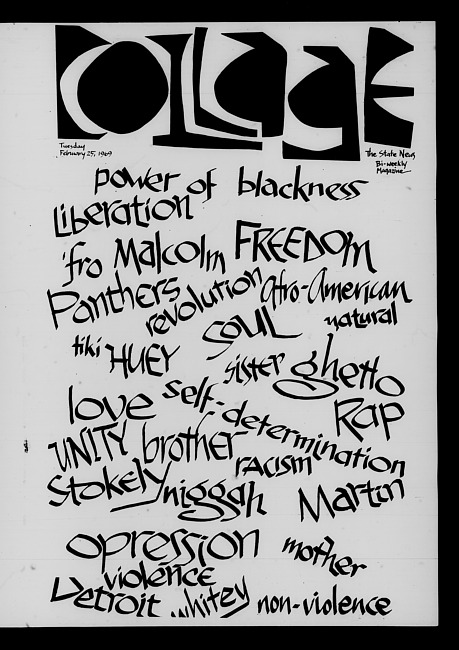 COLLAGE
Tuesday
February 25, 1969
The State News
Bi-weekly
Magazine
power of blackness
Liberation
'fro Malcolm FREEDOM
Panthers revolution Afro-American
SOUL natural
tiki HUEY sister ghetto
love self-determination Rap
UNITY brother racism
Stokely niggah Martin
opression mother
violence
Detroit whitey non-violence